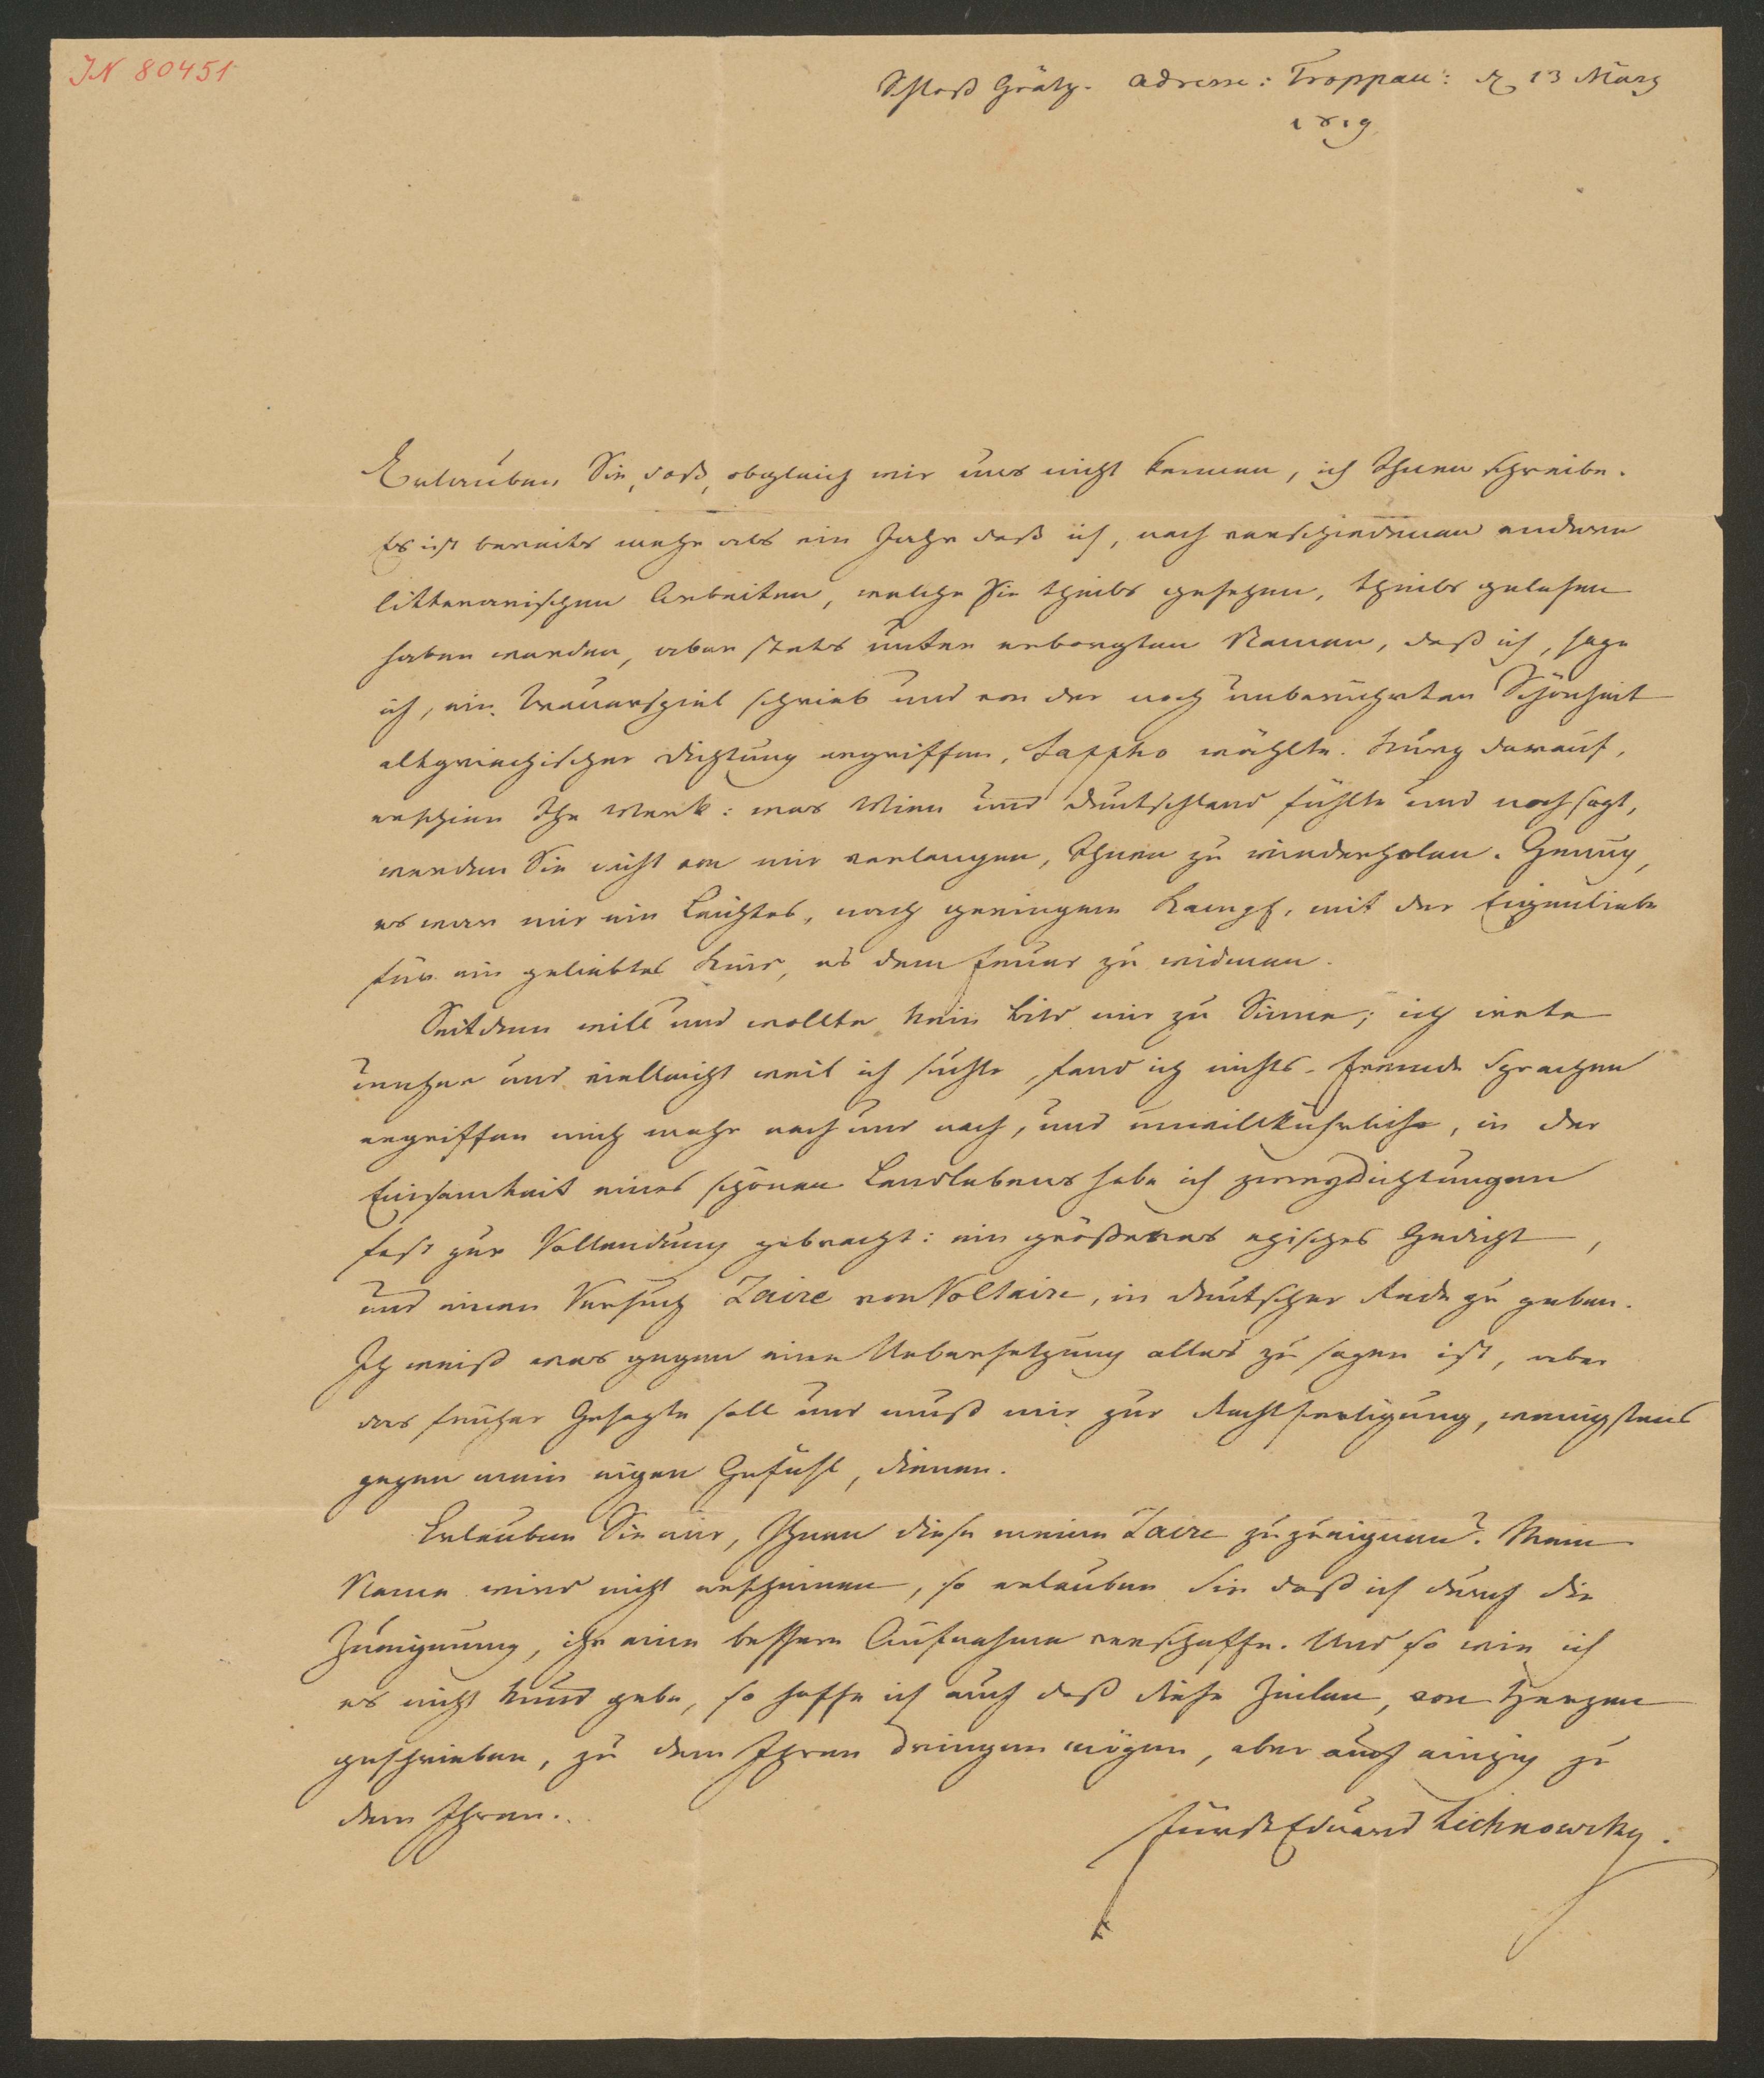 IN 80451
Schloß Grätz. Adresse: Troppau: d 13 März
1819
Erlauben Sie, daß, obgleich wir uns nicht kennen, ich Ihnen schreibe.
Es ist bereits mehr als ein Jahr daß ich, nach verschiedenen anderen
litterarischen Arbeiten, welche Sie theils gesehen, theils gelesen
haben werden, aber stets unter erborgten Namen, daß ich, sage
ich, ein Trauerspiel schrieb und von der noch unberührten Schönheit
altgriechischer Dichtung ergriffen, Sappho wählte. Kurz darauf,
erschien Ihr Werk: was Wien und Deutschland fühlte und noch sagt,
werden Sie nicht von mir verlangen, Ihnen zu wiederholen. Genug,
es war mir ein Leichtes, nach geringem Kampf, mit der Eigenliebe
für ein geliebtes Kind, es dem Feuer zu widmen.
Seitdem will und wollte kein Bild mir zu Sinne; ich irrte
umher und vielleicht weil ich suchte, fand ich nichts. Fremde Sprachen
ergriffen mich mehr nach und nach, und unwillkührlich, in der
Einsamkeit eines schönen Landlebens habe ich zwey Dichtungen
fast zur Vollendung gebracht: ein größeres episches Gedicht,
und einen Versuch Zaire von Voltaire, in deutscher Rede zu geben.
Ich weiß was gegen eine Uebersetzung alles zu sagen ist, aber
das früher Gesagte soll und muß mir zur Rechtfertigung, wenigstens
gegen mein eigen Gefühl, dienen.
Erlauben Sie mir, Ihnen diese meine Zaire zuzueignen? Mein
Name wird nicht erscheinen, so erlauben Sie daß ich durch die
Zueignung, ihr eine bessere Aufnahme verschaffe. Und so wie ich
es nicht kund gebe, so hoffe ich auch daß diese Zeilen, von Herzen
geschrieben, zu dem Ihren dringen mögen, aber auch einzig zu
dem Ihren.
Fürst Eduard Lichnowsky.